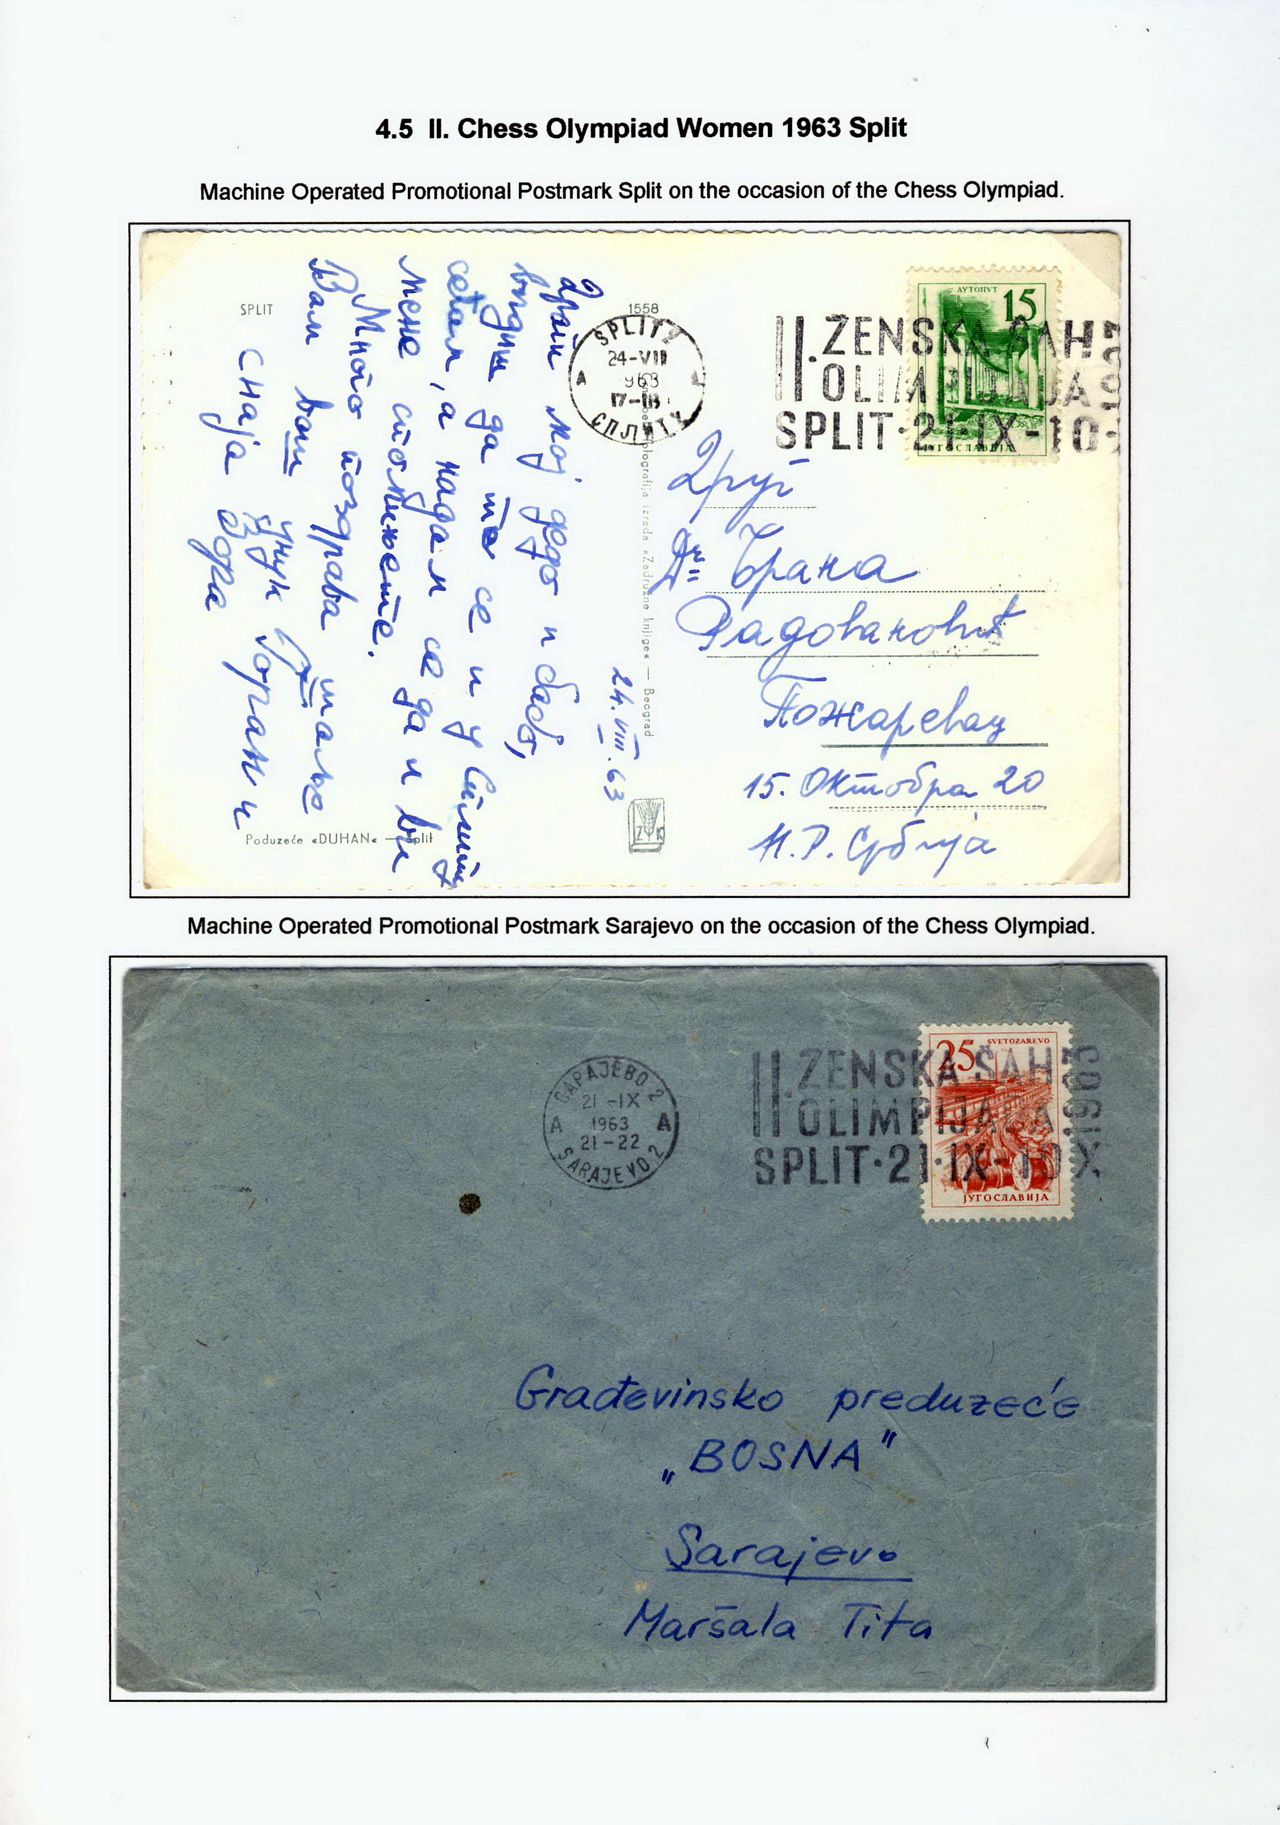 4.5 II. Chess Olympiad Women 1963 Split
Machine Operated Promotional Postmark Split on the occasion of the Chess Olympiad.
SPLIT
1558
SPLIT 2
24-VIII
1963
17-18
A
СПЛИТ 2
II. ŽENSKA ŠAH
OLIMPIJADA
SPLIT·21·IX-10·
АУТОПУТ
15
ЈУГОСЛАВИЈА
Драги мој деdo и бабо,
видиш да
сетам, а надам се да и ви
мене стобтињете.
Много поздрава
Вам ваш унук Горан и
снаја Зора
24.VIII.63
Друг
Др Брана
Радовановић
Пожаревац
15. Октобра 20
Н.Р. Србија
izrada «Zadružna knjiga» — Beograd
Z K
Poduzeće «DUHAN« — Split
Machine Operated Promotional Postmark Sarajevo on the occasion of the Chess Olympiad.
САРАЈЕВО 2
21-IX
A 1963 A
21-22
SARAJEVO 2
II. ŽENSKA ŠAH
OLIMPIJADA
SPLIT·21·IX-10 X
1963
25
SVETOZAREVO
ЈУГОСЛАВИЈА
Građevinsko preduzeće
„BOSNA"
Sarajevo
Maršala Tita